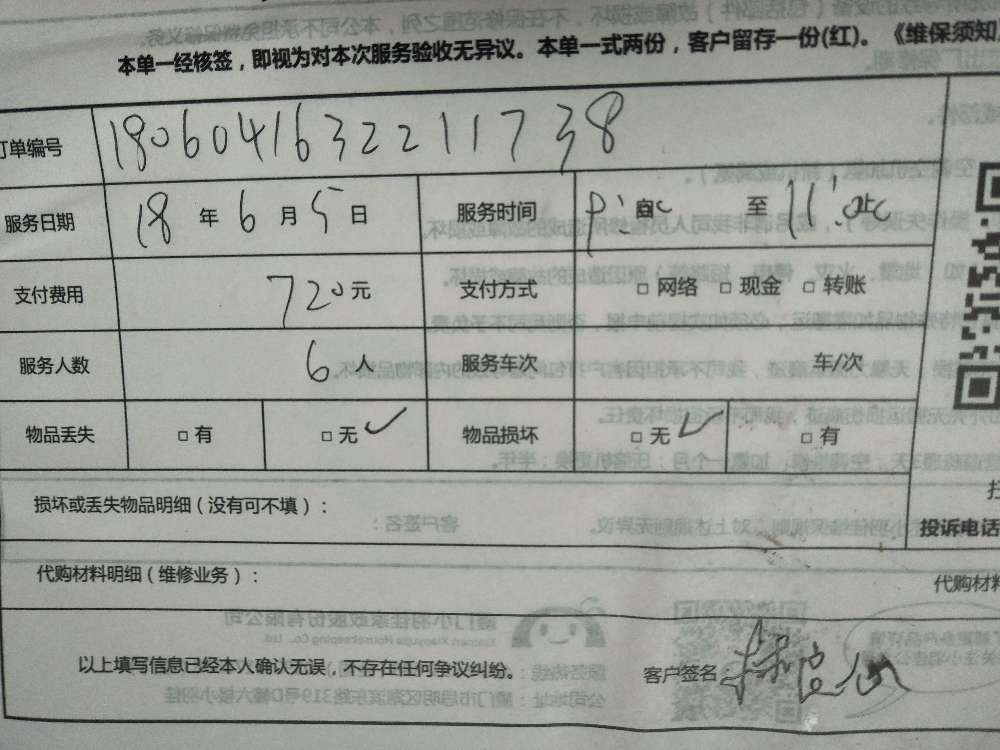 本单一经核签，即视为对本次服务验收无异议。本单一式两份，客户留存一份(红)。《维保须知
订单编号 1806041632211738
服务日期 18 年 6 月 5 日 服务时间 至
支付费用 720元 支付方式 □ 网络 □ 现金 □ 转账
服务人数 6 人 服务车次 车/次
物品丢失 □ 有 □ 无 ✓ 物品损坏 □ 无 ✓ □ 有
损坏或丢失物品明细（没有可不填）：
投诉电话
代购材料明细（维修业务）：
代购材料
以上填写信息已经本人确认无误，不存在任何争议纠纷。 客户签名